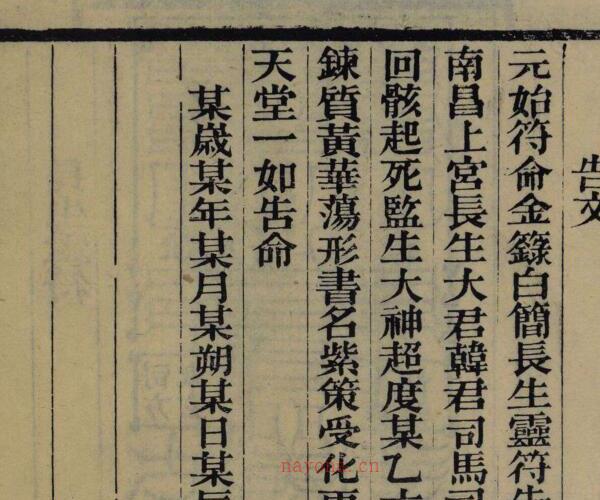 告文
元始符命金籙白簡長生靈符
南昌上宮長生大君韓君司馬
回骸起死監生大神超度某乙
鍊質黃華蕩形書名紫策受化
天堂一如告命
某歲某年某月某朔某日某
nayona.cn